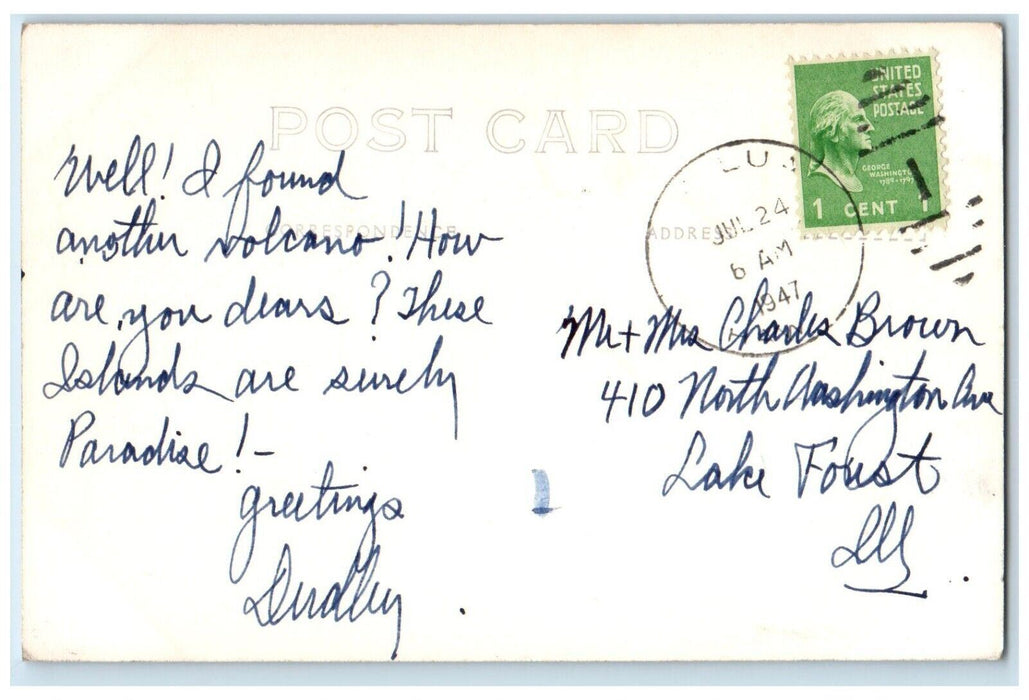 POST CARD
CORRESPONDENCE
ADDRESS
UNITED
STATES
POSTAGE
GEORGE
WASHINGTON
1 CENT 1
JUL 24
6 AM
1947
Well! I found
another volcano! How
are you dears? These
Islands are surely
Paradise! -
greetings
Dudley
Mr + Mrs Charles Brown
410 North Washington Ave
Lake Forest
Ill